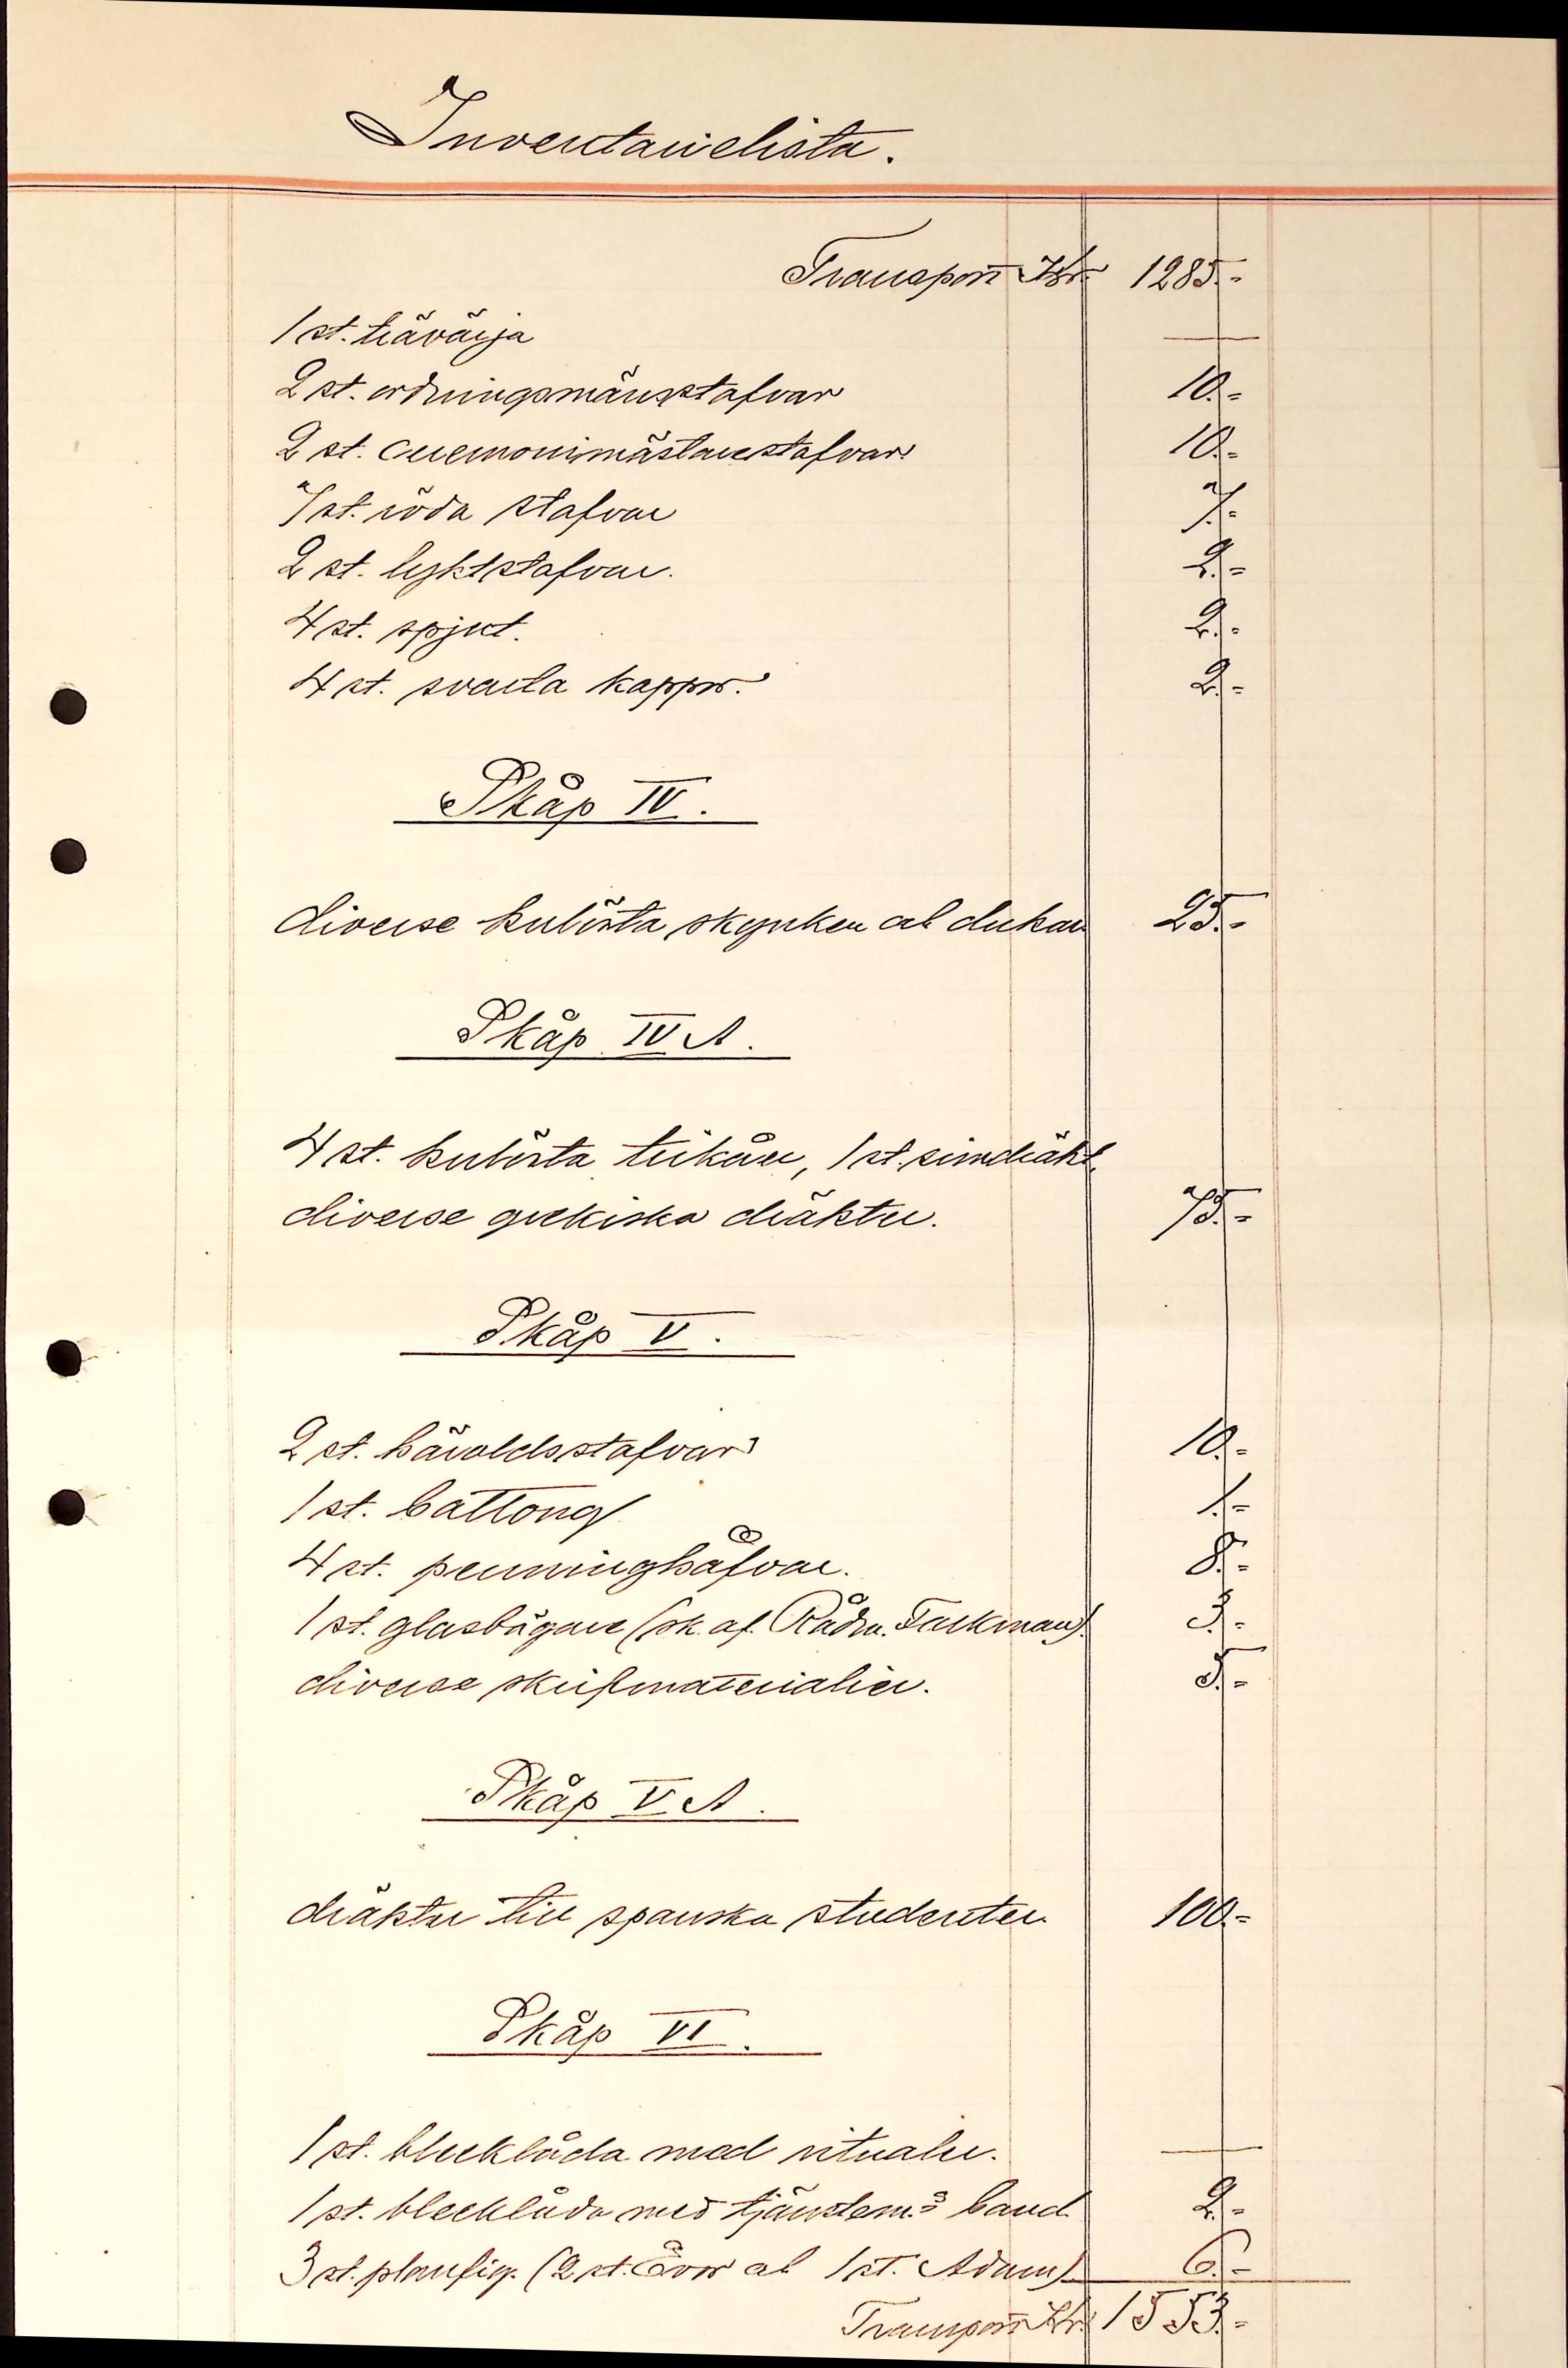 Inventarielista.
Transport Kr. 1285.-
1 st. trävärja —
2 st. ordningsmänsstafvar 10.-
2 st. ceremonimästarestafvar 10.-
7 st. röda stafvar 7.-
2 st. lyktstafvar. 2.-
4 st. spjut. 2.-
4 st. svarta kappor. 2.-
Skåp IV.
diverse kulörta skynken al dukar 25.-
Skåp IV A.
4 st. kulörta trikåer, 1 st. simdräkt,
diverse grekiska dräkter. 75.-
Skåp V.
2 st. häroldsstafvar 10.-
1 st. battong 1.-
4 st. penninghåfvar. 8.-
1 st. glasbägare (sk. af Rådm. Falkman). 3.-
diverse skrifmaterialier. 5.-
Skåp V A.
dräkter till spanska studenter 100.-
Skåp VI.
1 st. blecklåda med ritualer. —
1 st. blecklåda med tjänstem:s band 2.-
3 st. planfig. (2 st. Evor al 1 st. Adam) 6.-
Transport Kr. 1553.-